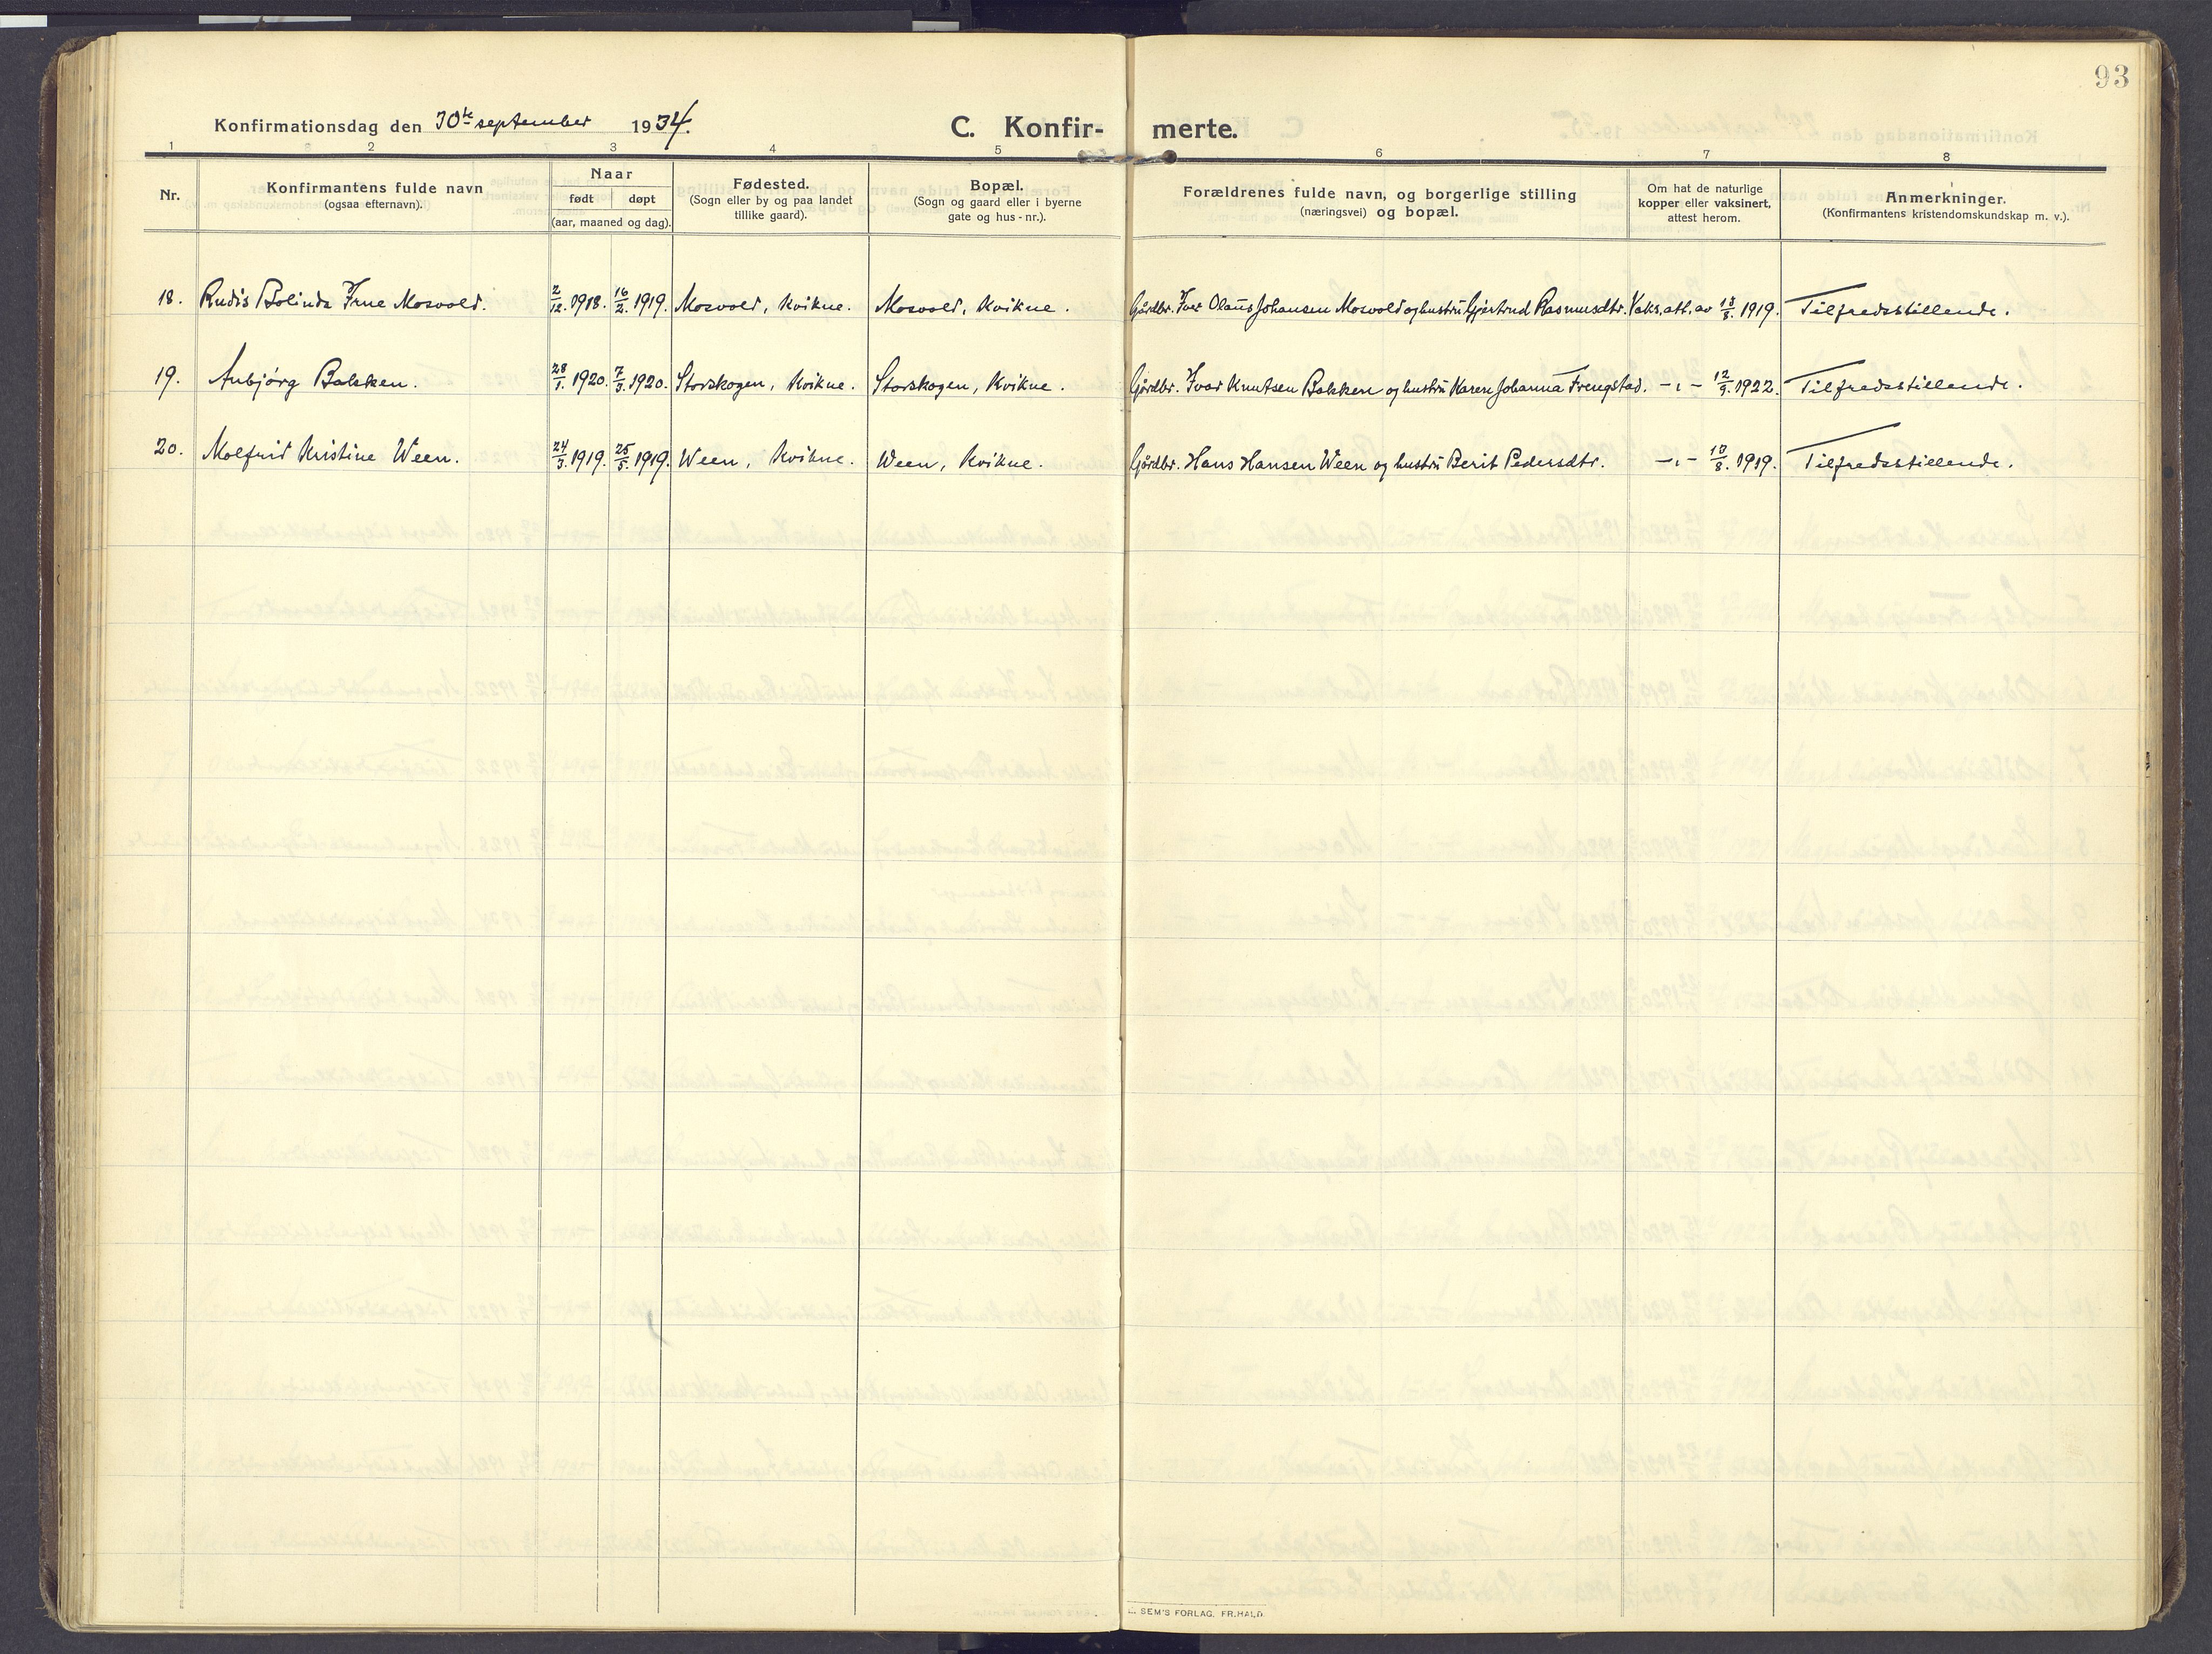 93
Konfirmationsdag den 30te september 1934.
C. Konfir- merte.
1 2 3 4 5 6 7 8
Nr. Konfirmantens fulde navn (ogsaa efternavn). Naar født døpt (aar, maaned og dag). Fødested. (Sogn eller by og paa landet tillike gaard). Bopæl. (Sogn og gaard eller i byerne gate og hus - nr.). Forældrenes fulde navn, og borgerlige stilling (næringsvei) og bopæl. Om hat de naturlige kopper eller vaksinert, attest herom. Anmerkninger. (Konfirmantens kristendomskundskap m. v.).
18. Rudis Bolinda Irne Mosvold. 2/12. 1918. 16/2. 1919. Mosvold, Kvikne. Mosvold, Kvikne. Gårdbr. Iver Olaus Johansen Mosvold og hustru Gjertrud Rasmusdtr. Vaks. att. av 18/8. 1919. Tilfredsstillende.
19. Anbjørg Bakken. 28/1. 1920. 7/3. 1920. Storskogen, Kvikne. Storskogen, Kvikne. Gårdbr. Ivar Knutsen Bakken og hustru Karen Johanna Frengstad. -"- 12/9. 1922. Tilfredsstillende.
20. Molfrid Kristine Ween. 24/3. 1919. 25/5. 1919. Ween, Kvikne. Ween, Kvikne. Gårdbr. Hans Hansen Ween og hustru Berit Pedersdtr. -"- 18/8. 1919. Tilfredsstillende.
SEM'S FORLAG. FR. HALD.